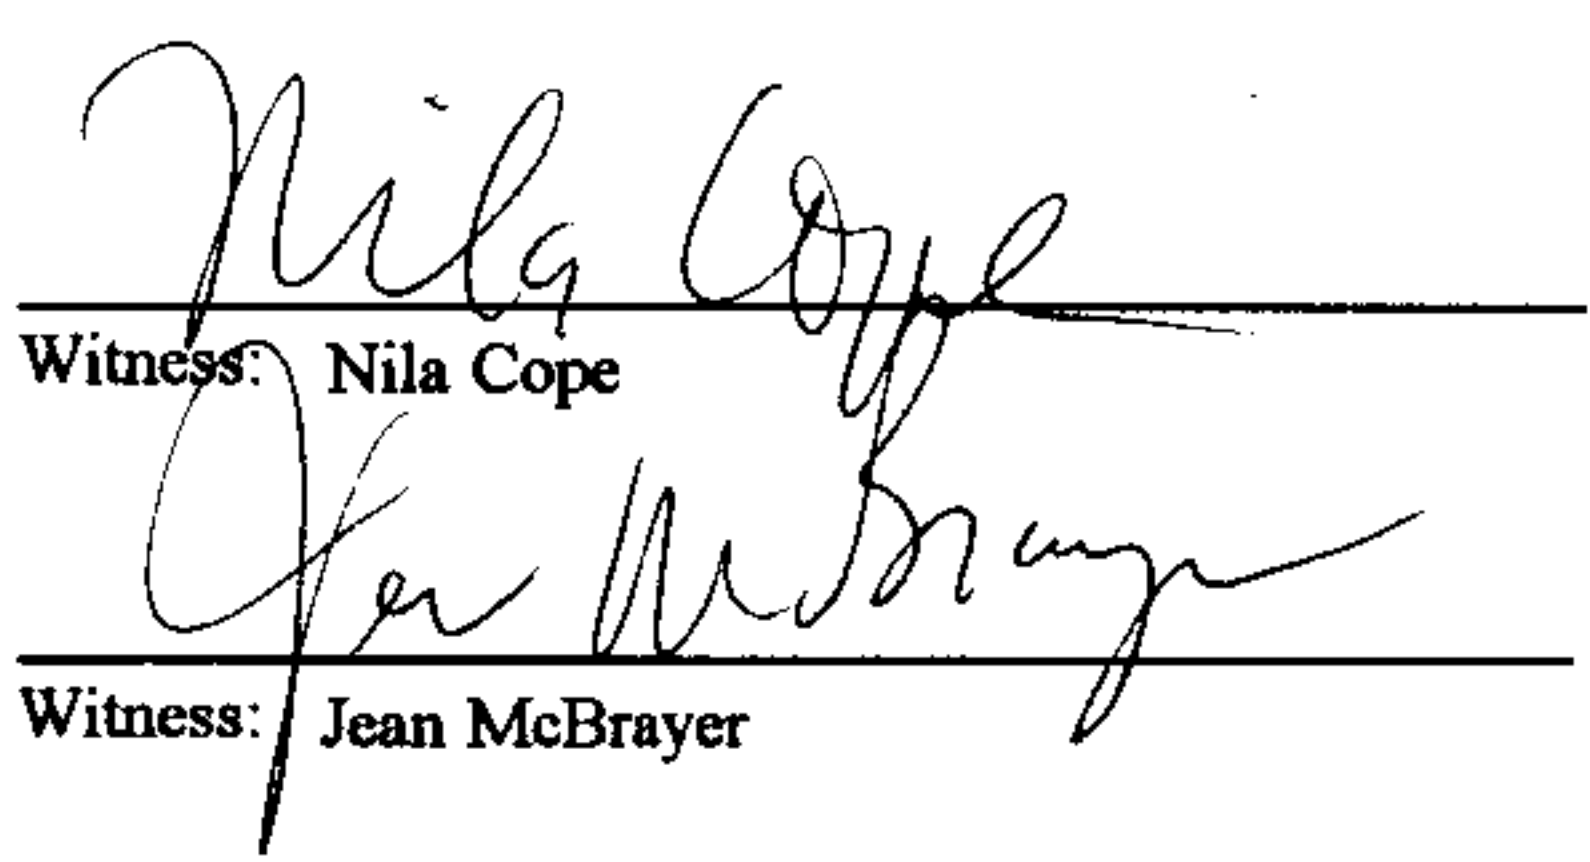 Nila Cope
Witness: Nila Cope
Jean McBrayer
Witness: Jean McBrayer